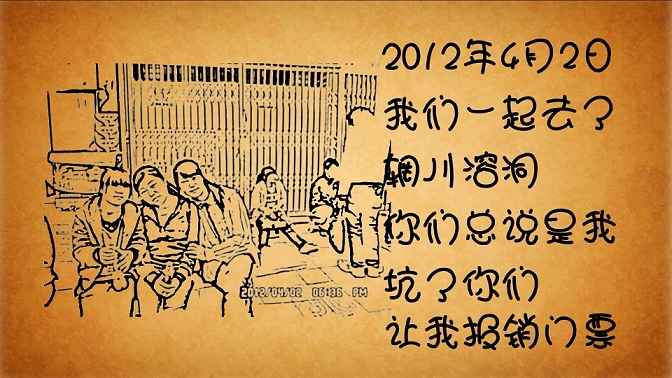 2012年4月2日
我们一起去了
辋川溶洞
你们总说是我
坑了你们
让我报销门票
2012/04/02 06:36 PM